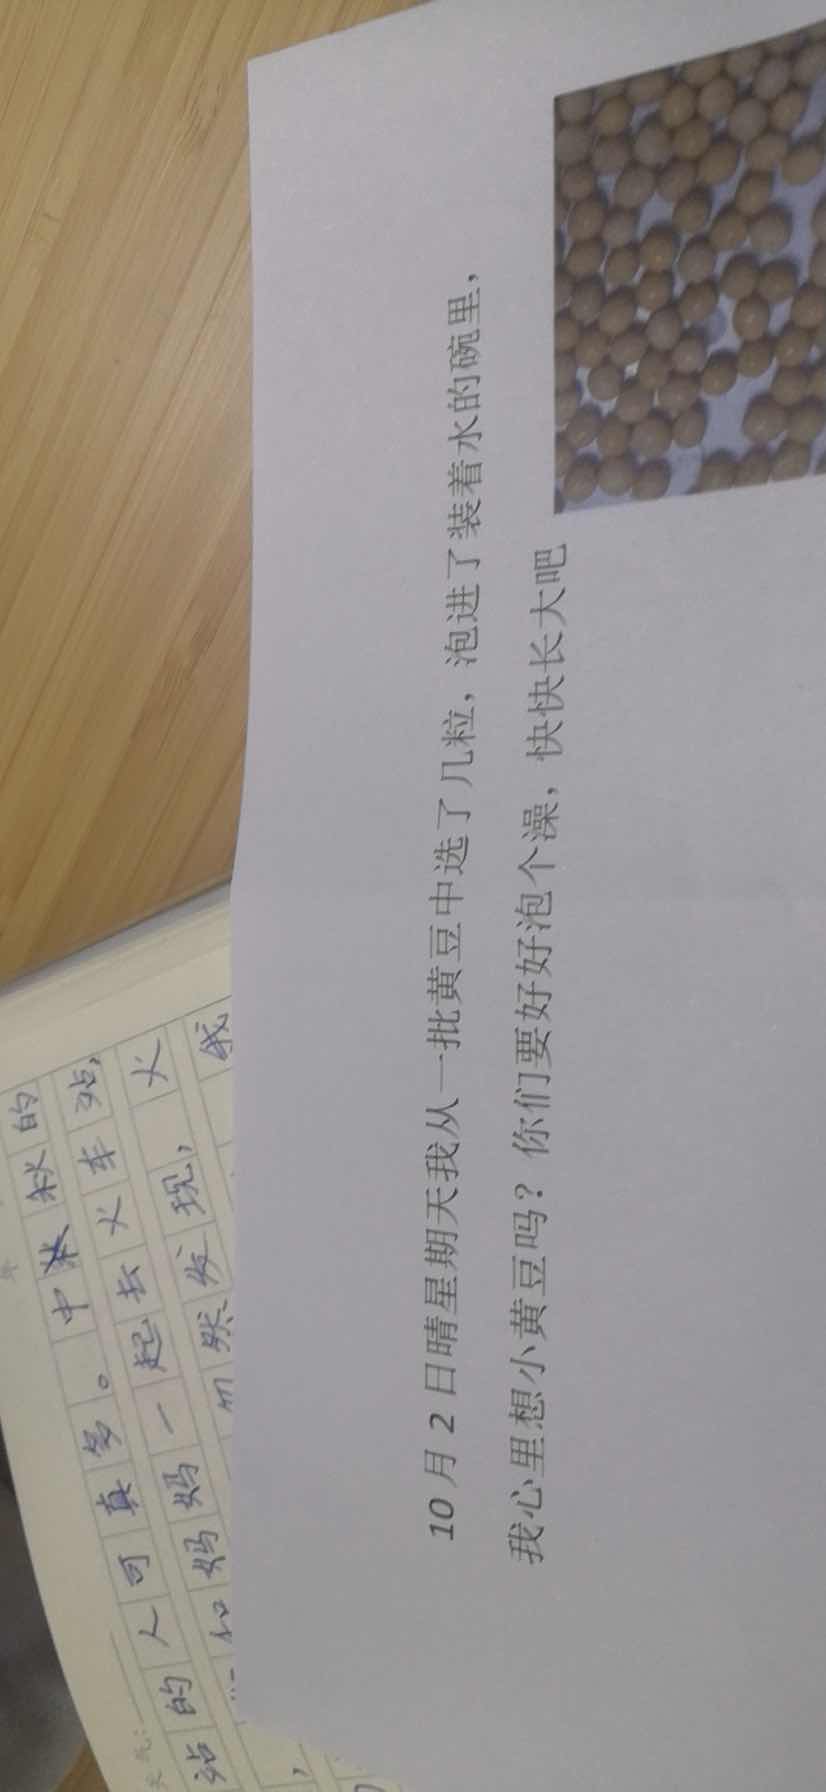 天气:
站的人可真多。中秋的
和妈妈一起去火车站，
忽然发现，火
我
10月2日晴星期天我从一批黄豆中选了几粒，泡进了装着水的碗里，
我心里想小黄豆吗？你们要好好泡个澡，快快长大吧